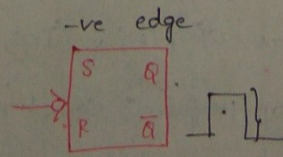 -ve edge
S Q
R Q̅